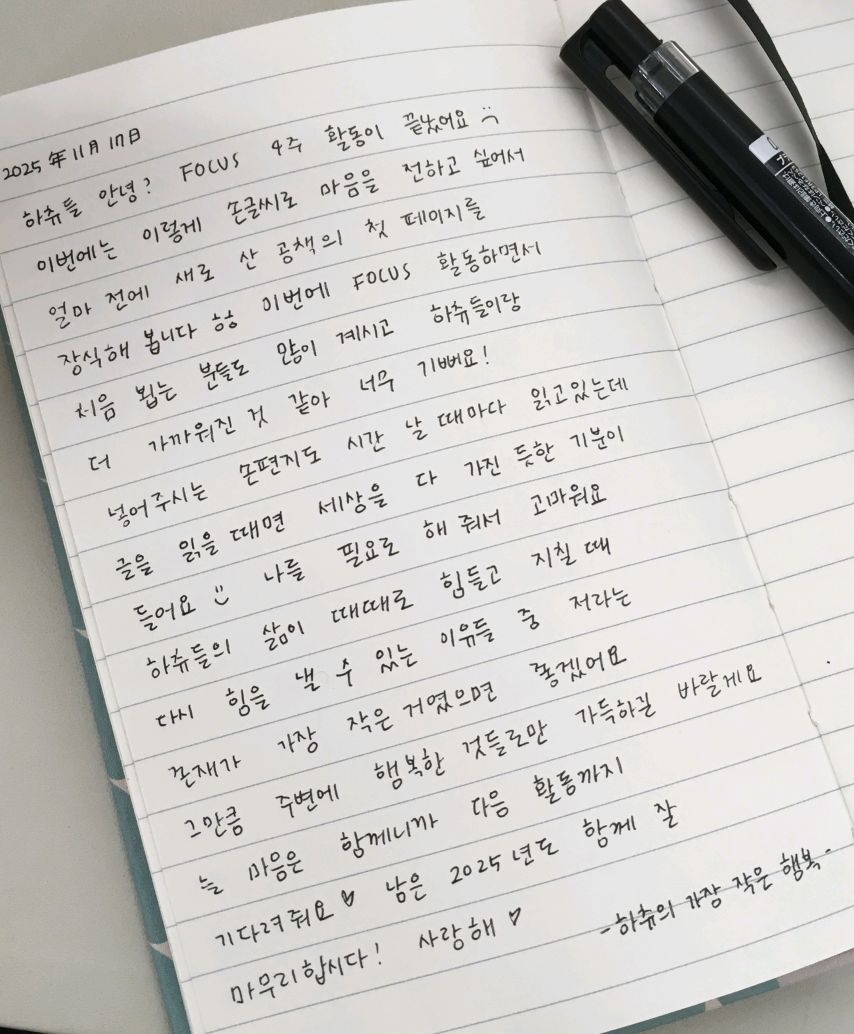 2025年 11月 17日
하츄들 안녕? FOCUS 4주 활동이 끝났어요 :(
이번에는 이렇게 손글씨로 마음을 전하고 싶어서
얼마 전에 새로 산 공책의 첫 페이지를
장식해 봅니다 ㅎㅎ 이번에 FOCUS 활동하면서
처음 뵙는 분들도 많이 계시고 하츄들이랑
더 가까워진 것 같아 너무 기뻐요!
넣어주시는 손편지도 시간 날 때마다 읽고있는데
글을 읽을 때면 세상을 다 가진 듯한 기분이
들어요 :) 나를 필요로 해 줘서 고마워요
하츄들의 삶이 때때로 힘들고 지칠 때
다시 힘을 낼 수 있는 이유들 중 저라는
존재가 가장 작은거였으면 좋겠어요
그만큼 주변에 행복한 것들로만 가득하길 바랄게요
늘 마음은 함께니까 다음 활동까지
기다려줘요♡ 남은 2025년도 함께 잘
마무리합시다! 사랑해♡
-하츄의 가장 작은 행복-